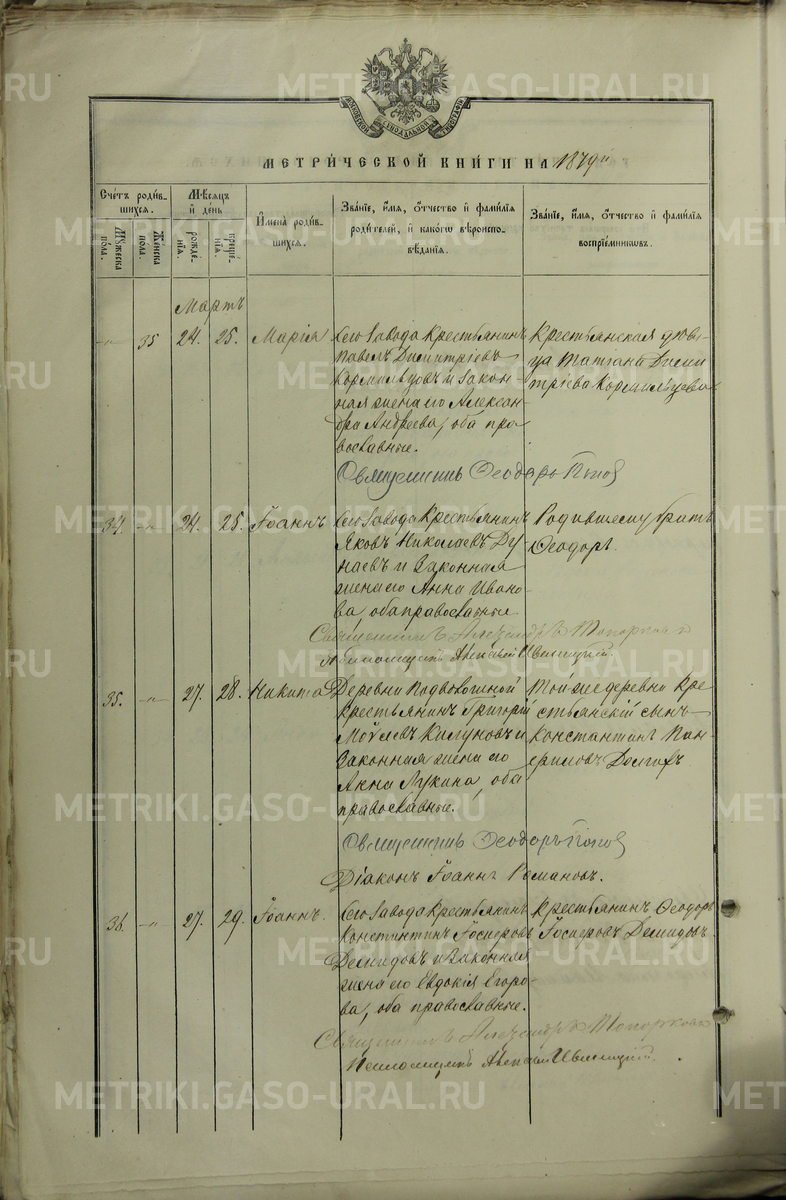 МЕТРИЧЕСКОЙ КНИГИ НА 1879й
Счетъ родив-
шихся.
Мѣсяцъ
и день
Мужеска
пола.
Женска
пола.
рожде-
нїя.
креще-
нїя.
Имена родив-
шихся.
Званїе, имя, отчество и фамилїя
родителей, и какогѡ вѣроиспо-
вѣданїя.
Званїе, имя, отчество и фамилїя
воспрїемникѡвъ.
Мартъ
-"- 35 24. 25. Марія
Сего завода крестьянинъ
Павелъ Димитріевъ
Кормильцовъ и закон-
ная жена его Алексан-
дра Андреева, оба пра-
вославные.
Крестьянская дѣви-
ца Татіана Дими-
тріева Кормильцова
Священникъ Ѳеодоръ Поповъ
34. -"- 24. 25. Іоаннъ
Сего завода крестьянинъ
Яковъ Николаевъ Ду-
наевъ и законная
жена его Анна Ивано-
ва, оба православные
Родившему братъ
Ѳеодоръ.
Священникъ Александръ Топорковъ
Псаломщикъ
35. -"- 27. 28. Никита
Деревни Подволошной
крестьянинъ Григорій
законная жена его
Анна Лукина, оба
православные.
Той же деревни кре-
стьянскій сынъ
Константинъ Пан-
филовъ
Священникъ Ѳеодоръ Поповъ
Діаконъ Іоаннъ Романовъ.
36. -"- 27. 29. Іоаннъ.
Сего завода крестьянинъ
Константинъ Іосифовъ
Демидовъ и законная
жена его Евдокія Егоро-
ва, оба православные.
Крестьянинъ Ѳеодоръ
Іосифовъ Демидовъ
Священникъ Александръ Топорковъ
Псаломщикъ
METRIKI.GASO-URAL.RU